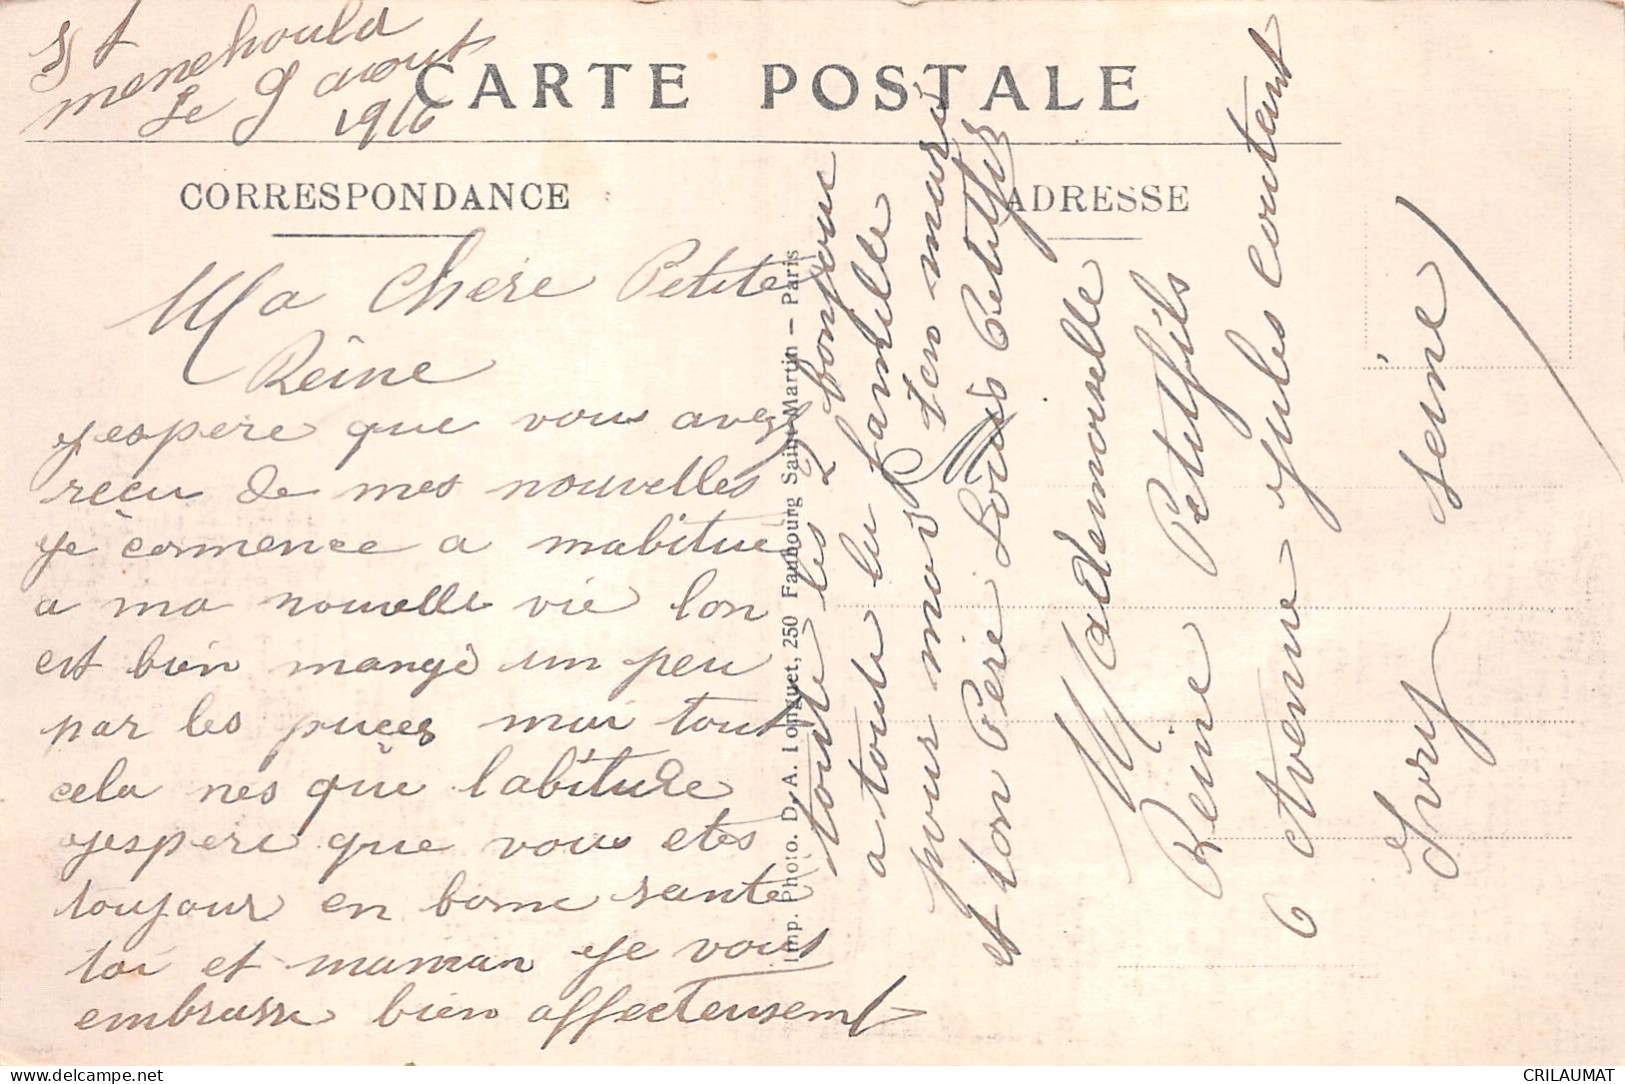 St
menehould
le 9 aout
1916
CARTE POSTALE
CORRESPONDANCE
ADRESSE
Ma Chere Petite
Reine
jespere que vous avez
reçu de mes nouvelles
je commence a mabitue
a ma nouvelle vie lon
est bien mangé un peu
par les puces mai tout
cela nes que labitude
jespere que vous etes
toujour en bonne sante
toi et maman je vous
embrasse bien affecteusement
toute les 2 bonjour
a toute la famille
pour moi ton mari
et ton Pere Louis Petitfils
Imp. Photo. D. A. Longuet, 250 Faubourg Saint-Martin — Paris
Mademoiselle
Reine Petitfils
6 Avenue Jules Coutant
Ivry seine
CRILAUMAT